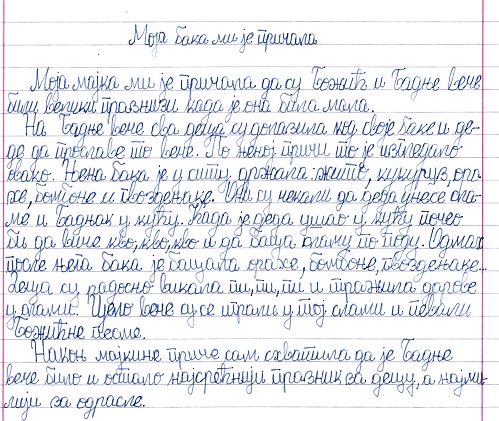 Моја бака ми је причала
Моја мајка ми је причала да су Божић и Бадње вече
били велики празници када је она била мала.
На Бадње вече сва деца су долазила код своје баке и де-
де да прославе то вече. По њеној причи то је изгледало
овако. Њена бака је у ситу држала: жито, кукуруз, ора-
хе, бомбоне и гвозденаке. Они су чекали да деда унесе сла-
му и Бадњак у кућу. Када је деда ушао у кућу почео
би да виче кво, кво, кво и да баца сламу по поду. Одмах
после њега бака је бацала орахе, бомбоне, гвозденаке...
Деца су радосно викала пи, пи, пи и тражила дарове
у слами. Цело вече су се играли у тој слами и певали
Божићне песме.
Након мајкине приче сам схватила да је Бадње
вече било и остало најсрећнији празник за децу, а најми-
лији за одрасле.